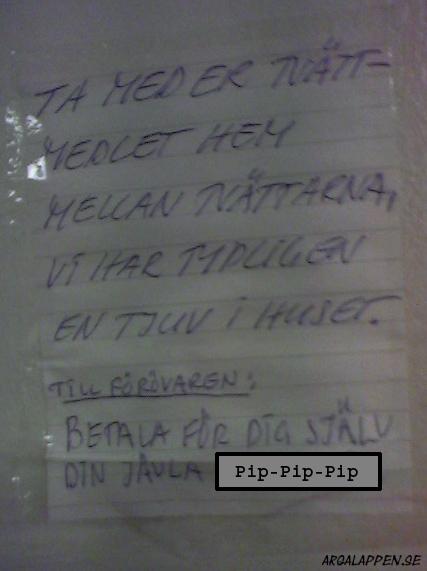 TA MED ER TVÄTT-
MEDLET HEM
MELLAN TVÄTTARNA,
VI HAR TYDLIGEN
EN TJUV I HUSET.
TILL FÖRÖVAREN:
BETALA FÖR DIG SJÄLV
DIN JÄVLA Pip-Pip-Pip
ARGALAPPEN.SE